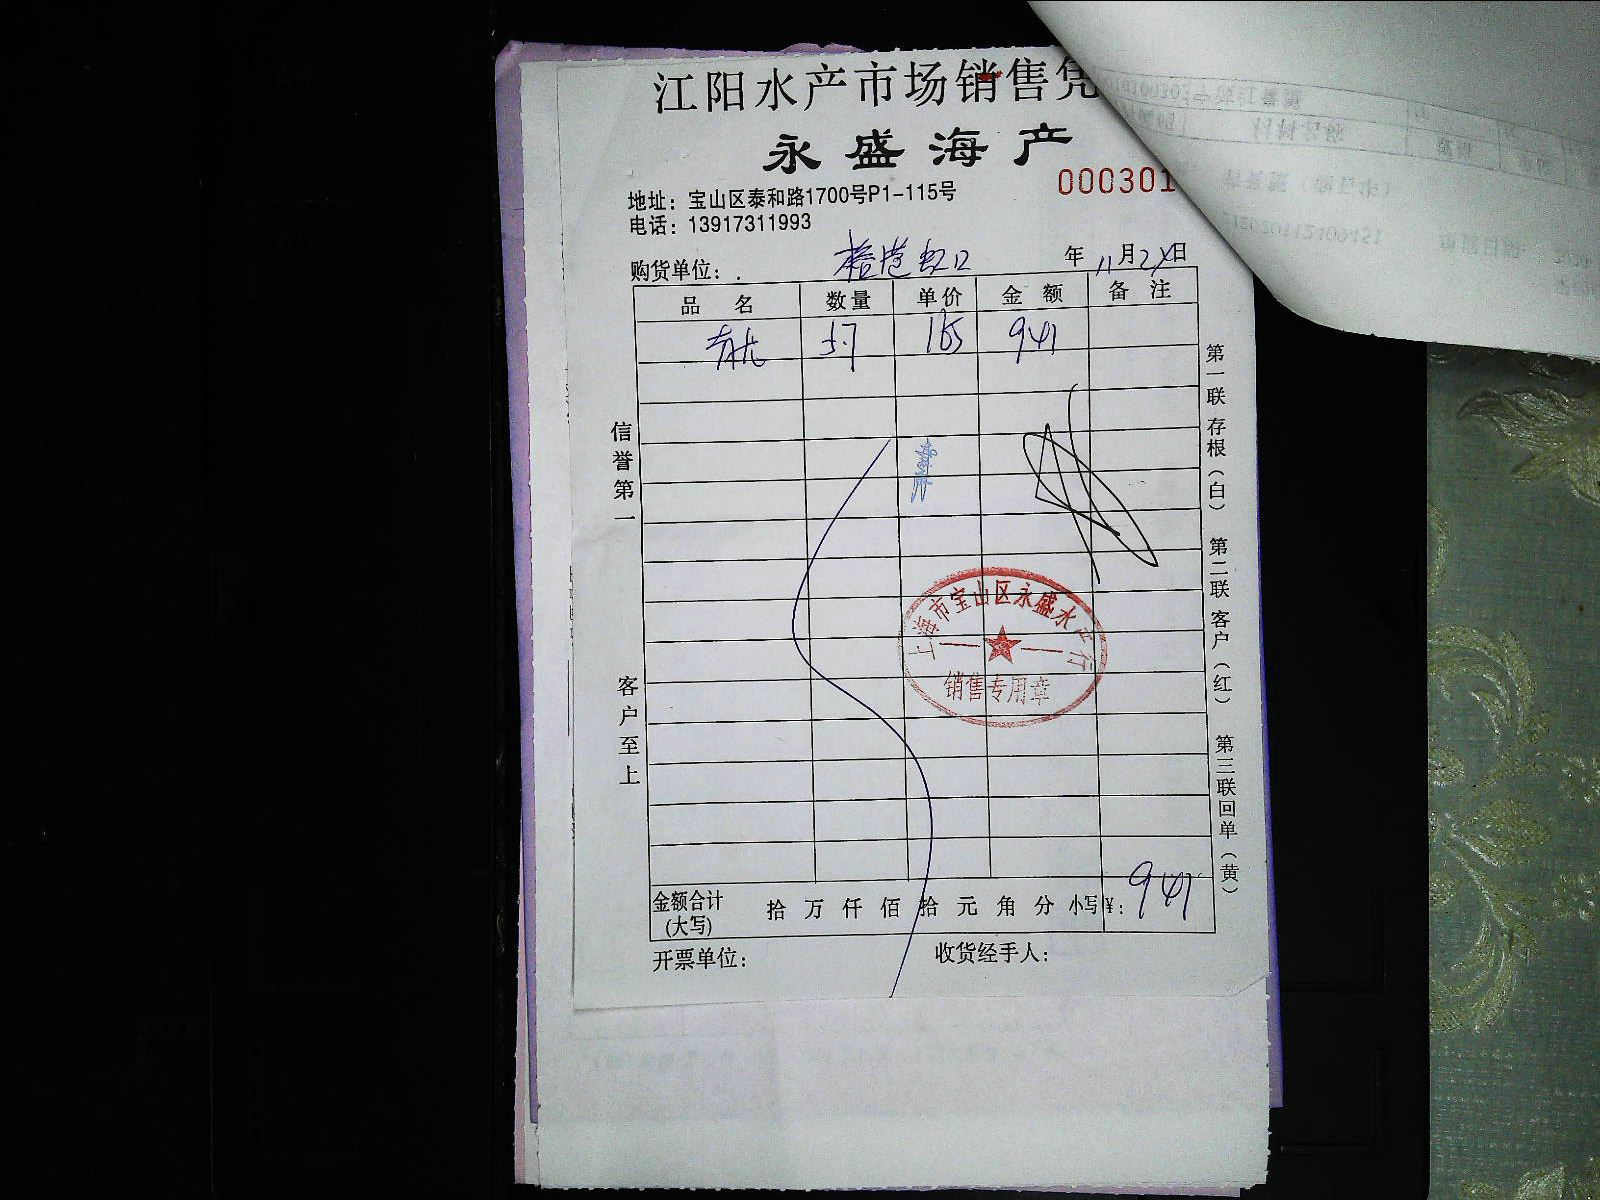 江阳水产市场销售凭
永盛海产
000301
地址：宝山区泰和路1700号P1-115号
电话：13917311993
购货单位： 虹口 年 11月2 日
品 名 数量 单价 金 额 备 注
青龙 5.7 165 941
信誉第一
客户至上
第一联存根（白） 第二联客户（红） 第三联回单（黄）
上海市宝山区永盛水产行
销售专用章
金额合计(大写) 拾 万 仟 佰 拾 元 角 分 小写¥： 941
开票单位： 收货经手人：